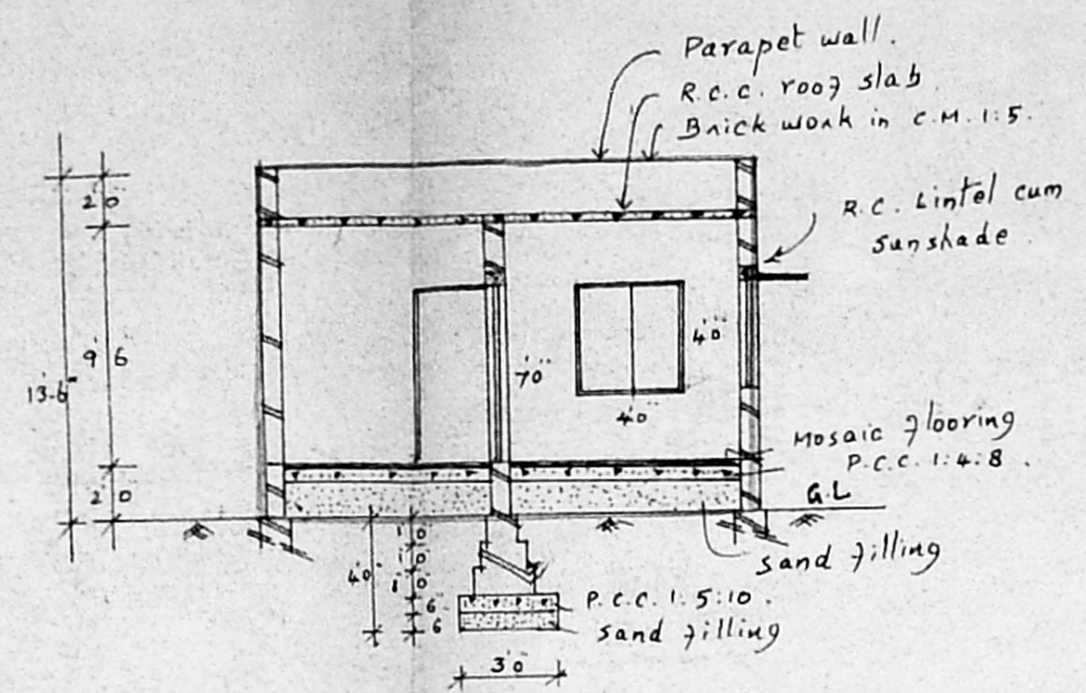 Parapet wall.
R.C.C. roof slab
Brick work in C.M. 1:5.
R.C. Lintel cum
sunshade.
2'0"
9'6"
13'-6"
2'0"
7'0"
4'0"
4'0"
Mosaic flooring
P.C.C. 1:4:8.
G.L
sand filling
4'0"
1'0"
1'0"
1'0"
6"
6
P.C.C. 1:5:10.
sand filling
3'0"